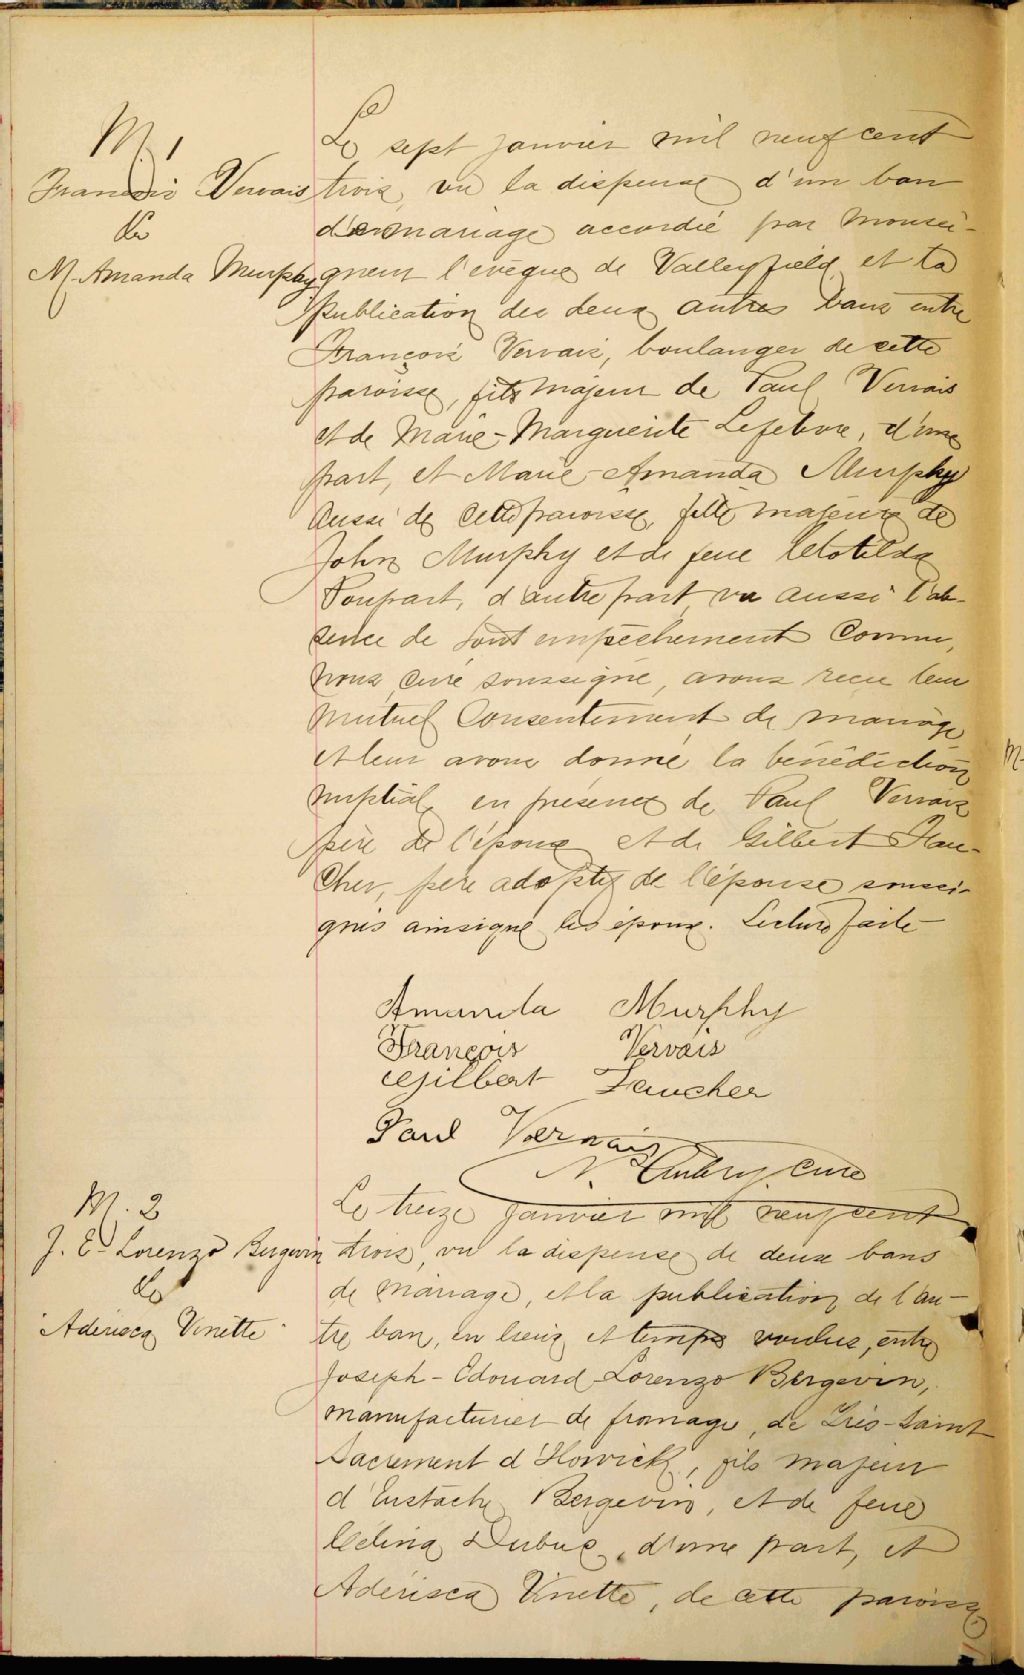 M. 1
François Vervais
&
M. Amanda Murphy
Le sept janvier mil neuf cent
trois, vu la dispense d'un ban
de mariage accordée par Monsei-
gneur l'évêque de Valleyfield et la
publication des deux autres bans entre
François Vervais, boulanger de cette
paroisse, fils majeur de Paul Vervais
et de Marie-Marguerite Lefebvre, d'une
part, et Marie-Amanda Murphy
aussi de cette paroisse, fille majeure de
John Murphy et de feue Clotilda
Poupart, d'autre part, vu aussi l'ab-
sence de tout empêchement connu,
nous, curé soussigné, avons reçu leur
mutuel consentement de mariage
et leur avons donné la bénédiction
nuptiale en présence de Paul Vervais
père de l'époux et de Gilbert Fau-
cher, père adoptif de l'épouse soussi-
gnés ainsi que les époux. Lecture faite
Amanda Murphy
François Vervais
Gilbert Faucher
Paul Vervais
N. Aubry, curé
M. 2
J. E. Lorenzo Bergevin
&
Adérisca Vinette
Le treize janvier mil neuf cent
trois, vu la dispense de deux bans
de mariage, et la publication de l'au-
tre ban, en lieux et temps voulus, entre
Joseph-Edouard-Lorenzo Bergevin,
manufacturier de fromage, de Très-Saint
Sacrement d'Howick, fils majeur
d'Eustache Bergevin, et de feue
Célina Dubuc, d'une part, et
Adérisca Vinette, de cette paroisse,